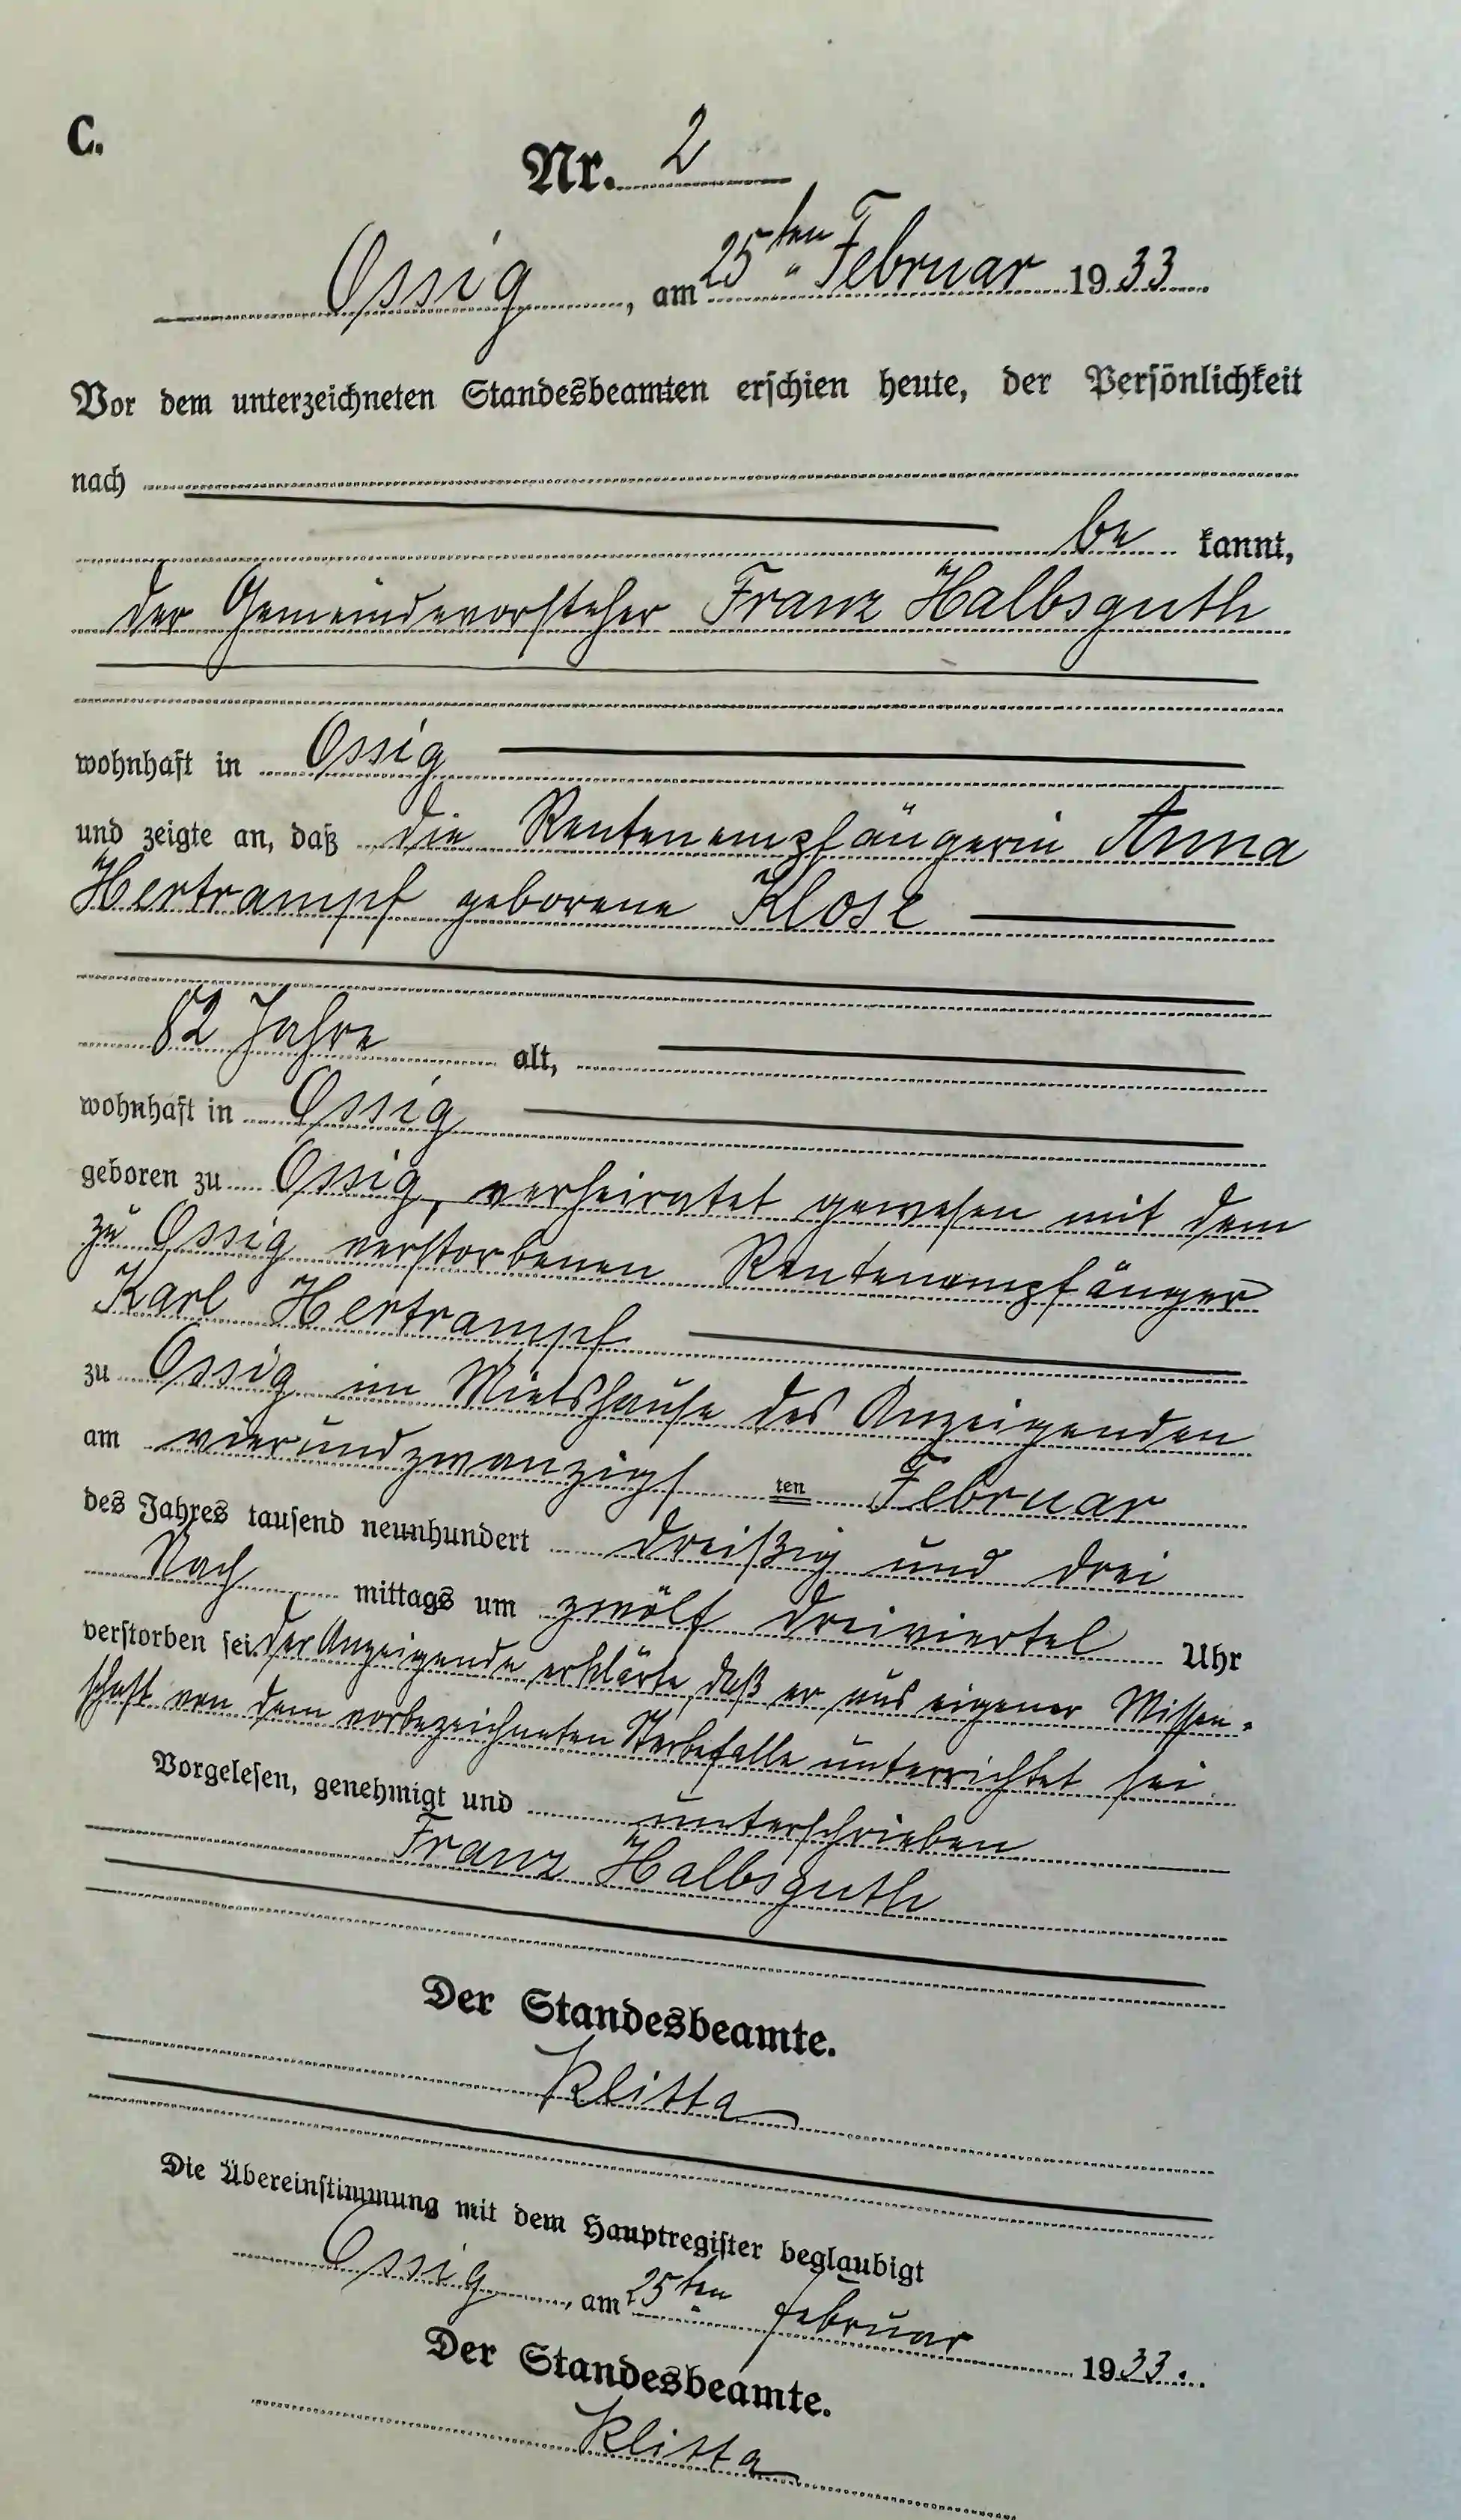 C.
Nr. 2
Ossig, am 25ten Februar 1933.
Vor dem unterzeichneten Standesbeamten erschien heute, der Persönlichkeit
nach
be kannt,
der Gemeindevorsteher Franz Halbsguth
wohnhaft in Ossig
und zeigte an, daß die Rentenempfängerin Anna
Hertrampf geborene Klose
82 Jahre alt,
wohnhaft in Ossig
geboren zu Ossig, verheiratet gewesen mit dem
zu Ossig verstorbenen Rentenempfänger
Karl Hertrampf
zu Ossig im Mietshause des Anzeigenden
am vierundzwanzigs ten Februar
des Jahres tausend neunhundert dreißig und drei
Nach mittags um zwölf dreiviertel Uhr
verstorben sei. Der Anzeigende erklärte, daß er aus eigener Wissen-
schaft von dem vorbezeichneten Sterbefalle unterrichtet sei
Vorgelesen, genehmigt und unterschrieben
Franz Halbsguth
Der Standesbeamte.
Klitta
Die Übereinstimmung mit dem Hauptregister beglaubigt
Ossig, am 25ten Februar 1933.
Der Standesbeamte.
Klitta